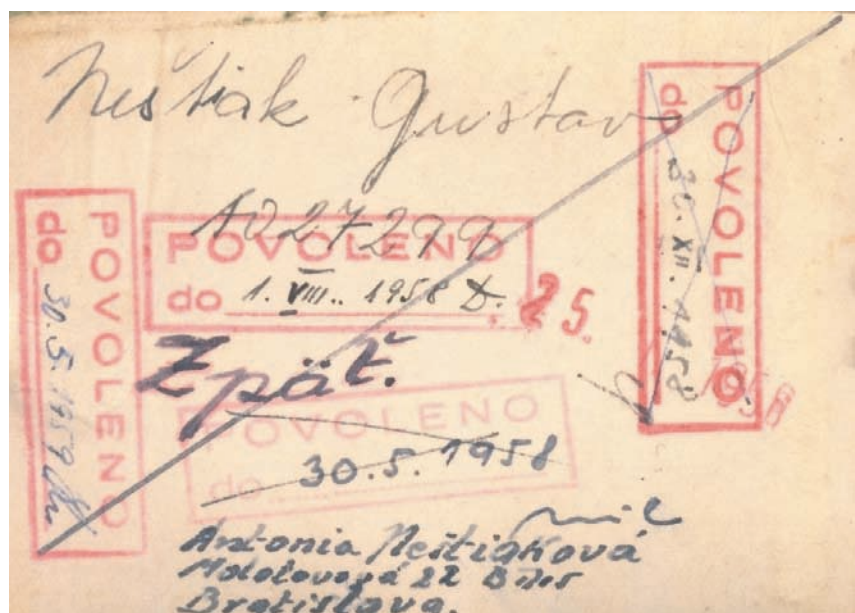 Neštiak Gustav
A027299
POVOLENO
do 1. VIII. 1958
25.
POVOLENO
do 30. XII. 1958
POVOLENO
do 30. 5. 1959
Zpäť.
POVOLENO
do
30.5.1958
Antonia Neštiaková
Molotovová 22
Bratislava.